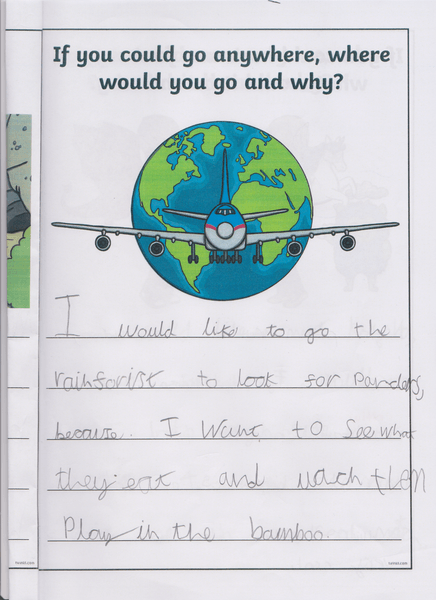 If you could go anywhere, where
would you go and why?
I would like to go the
rainforist to look for panders,
because. I Want to See what
they eat and wach tLen
Play in the bamboo.
twinkl.com